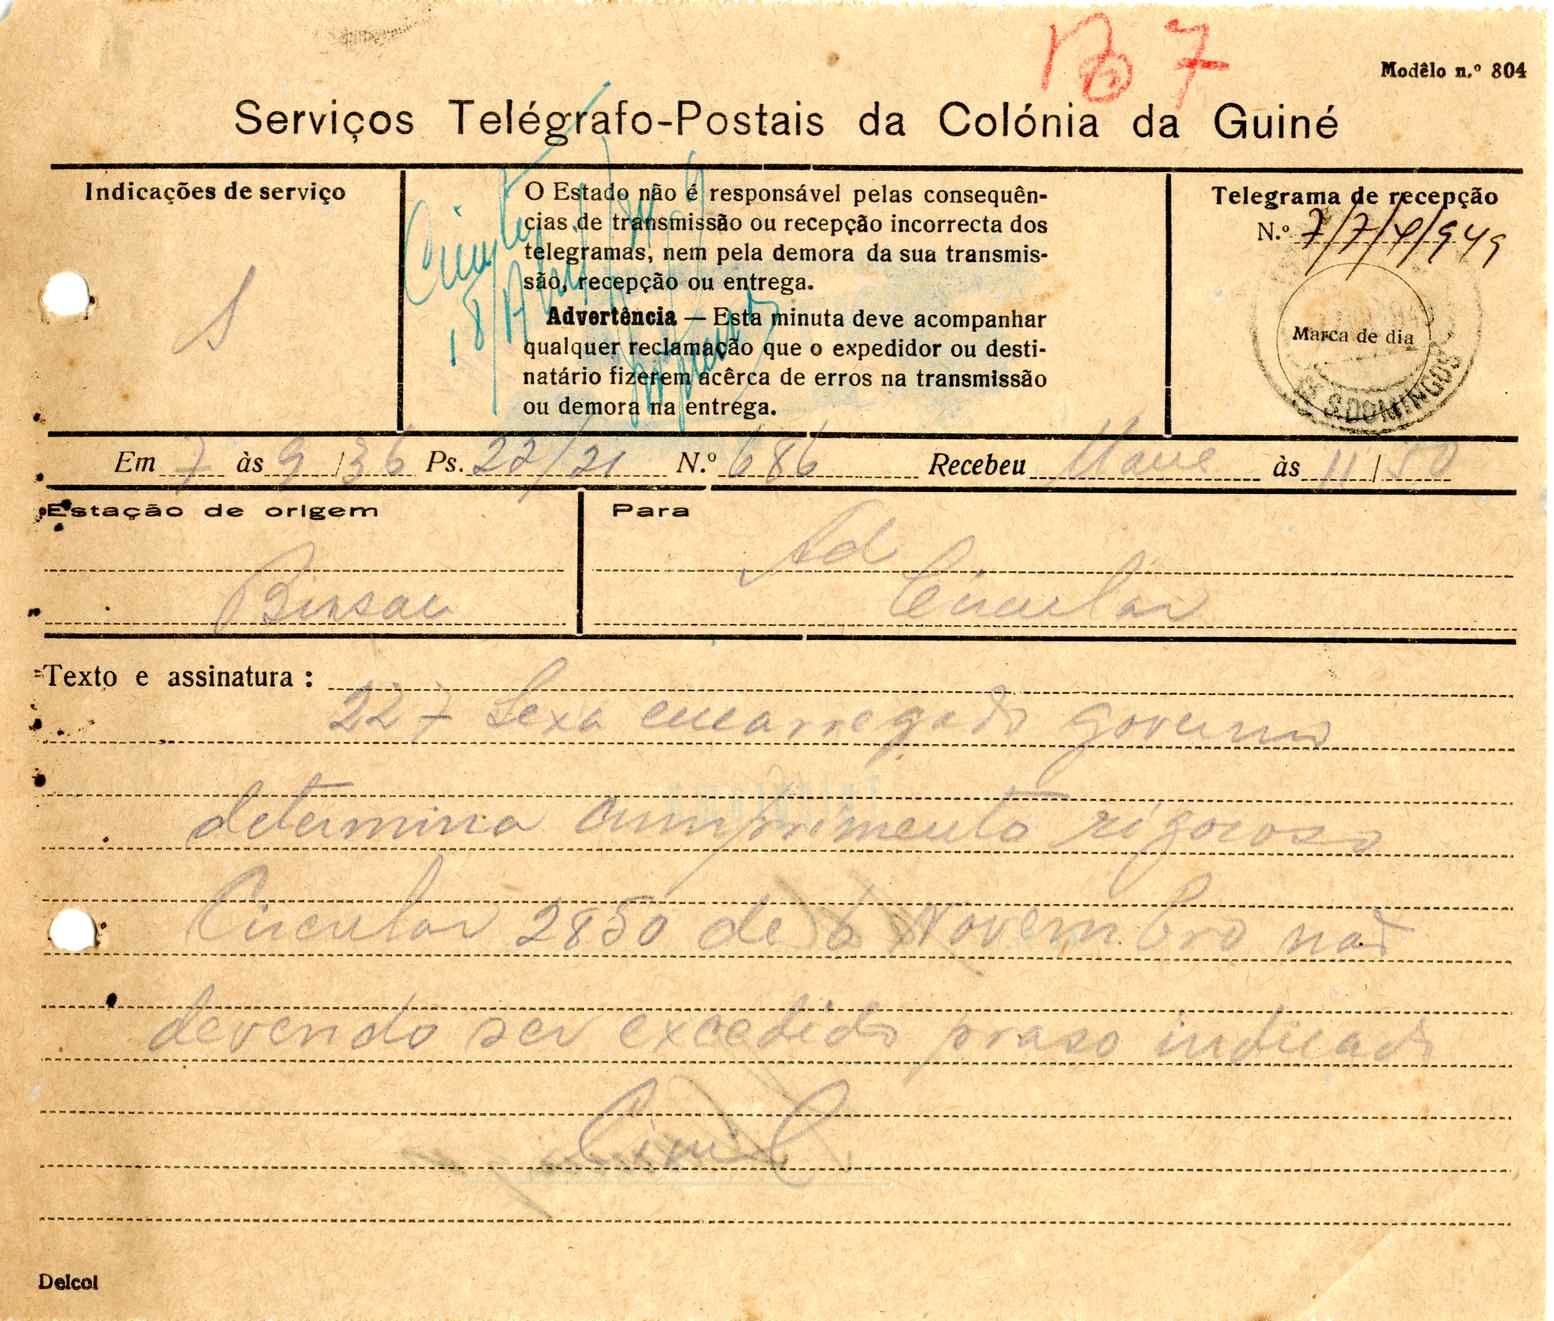 Po 7
Modêlo n.º 804
Serviços Telégrafo-Postais da Colónia da Guiné
Indicações de serviço
S
O Estado não é responsável pelas consequên-
cias de transmissão ou recepção incorrecta dos
telegramas, nem pela demora da sua transmis-
são, recepção ou entrega.
Advertência — Esta minuta deve acompanhar
qualquer reclamação que o expedidor ou desti-
natário fizerem acêrca de erros na transmissão
ou demora na entrega.
Telegrama de recepção
N.º 7/7/4/949
Marca de dia
S. DOMINGOS
Em 7 às 9/36 Ps. 22/21 N.º 686 Recebeu Mané às 11/50
Estação de origem
Para
Ad
Bissau
Circular
Texto e assinatura:
227 Sexa encarregado governo
determina cumprimento rigoroso
Circular 2850 de 6 Novembro não
devendo ser excedido praso indicado
Civil
Delcol